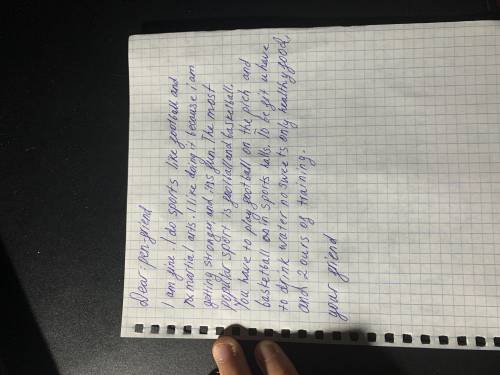 Dear pen-friend
I am fine. I do sports like football and
martial arts. I like doing it because i am
getting stronger, and its fun. The most
populer sport is football and basketball.
You have to play football on the pich and
basketball in sports halls. To be fit u have
to drink water no sweets only healthy food,
and 2 ours of training.
your friend